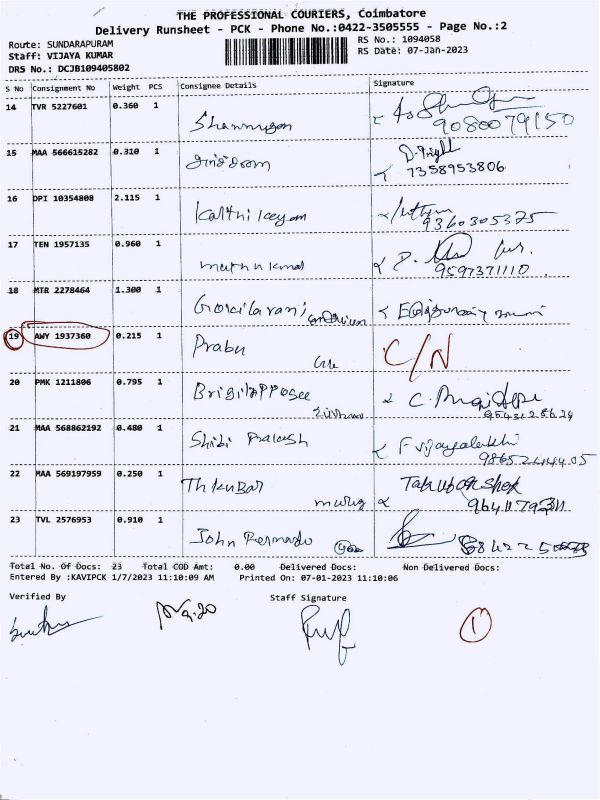 THE PROFESSIONAL COURIERS, Coimbatore
Delivery Runsheet - PCK - Phone No.:0422-3505555 - Page No.:2
Route: SUNDARAPURAM
RS No.: 1094058
Staff: VIJAYA KUMAR
RS Date: 07-Jan-2023
DRS No.: DCJB109405802
S No Consignment No Weight PCS Consignee Details Signature
14 TVR 5227601 0.360 1 Shanmugan
9080079150
15 MAA 566615282 0.310 1
7358953806
16 DPI 10354808 2.115 1 Karthikeyan
9360305375
17 TEN 1957135 0.960 1 muthukmal
9597371110
18 MTR 2278464 1.300 1
19 AWY 1937360 0.215 1 Prabu C/N
20 PMK 1211806 0.795 1
21 MAA 568862192 0.480 1 Shibi Prakash F vijayalakhi
22 MAA 569197959 0.250 1 murug
23 TVL 2576953 0.910 1 John
Total No. Of Docs: 23 Total COD Amt: 0.00 Delivered Docs: Non Delivered Docs:
Entered By :KAVIPCK 1/7/2023 11:10:09 AM Printed On: 07-01-2023 11:10:06
Verified By Staff Signature
9.20
1